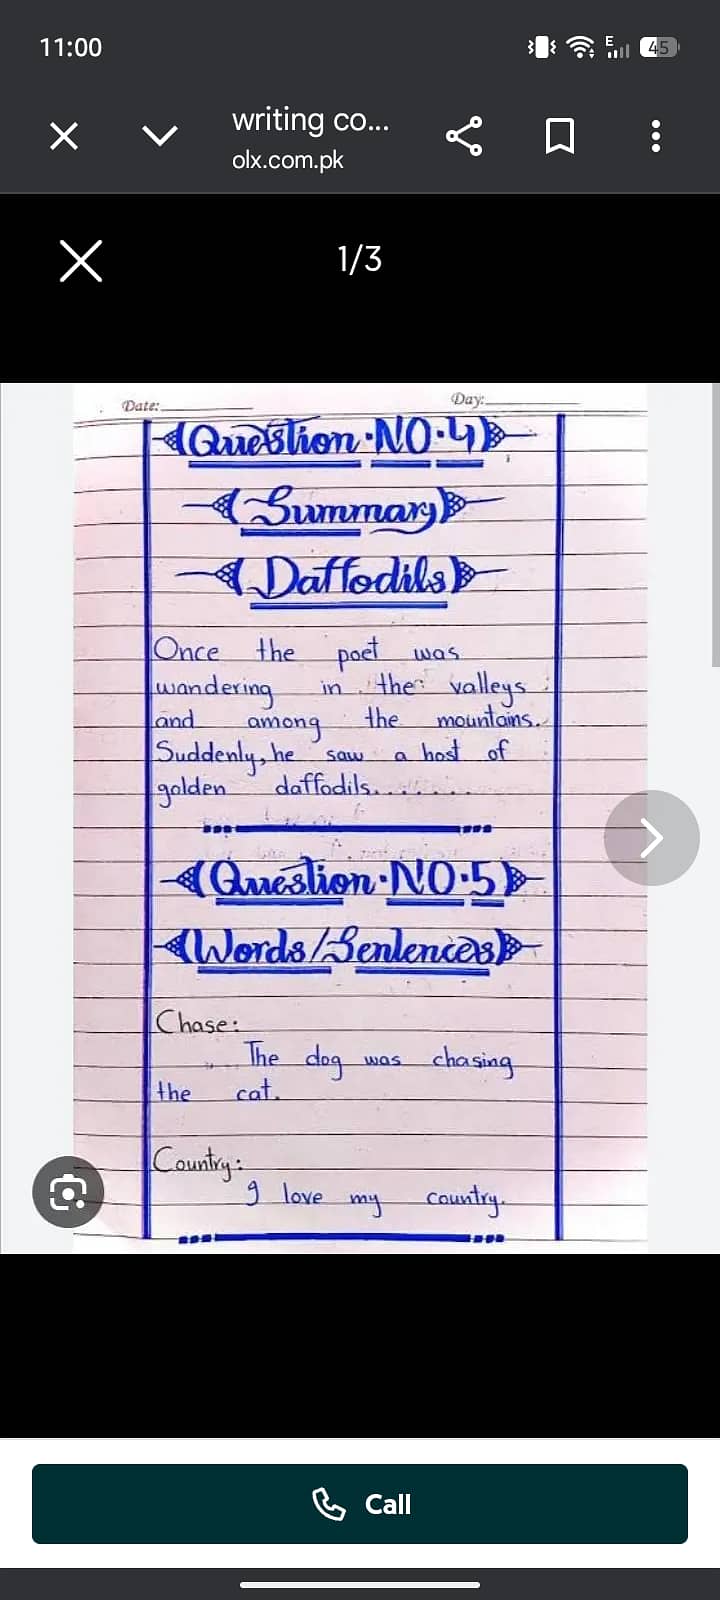 11:00
45
writing co...
olx.com.pk
1/3
Date:
Day:
Question NO.4
Summary
Daffodils
Once the poet was
wandering in the valleys
and among the mountains.
Suddenly, he saw a host of
golden daffodils........
Question NO.5
Words/Sentences
Chase:
The dog was chasing
the cat.
Country:
I love my country.
Call